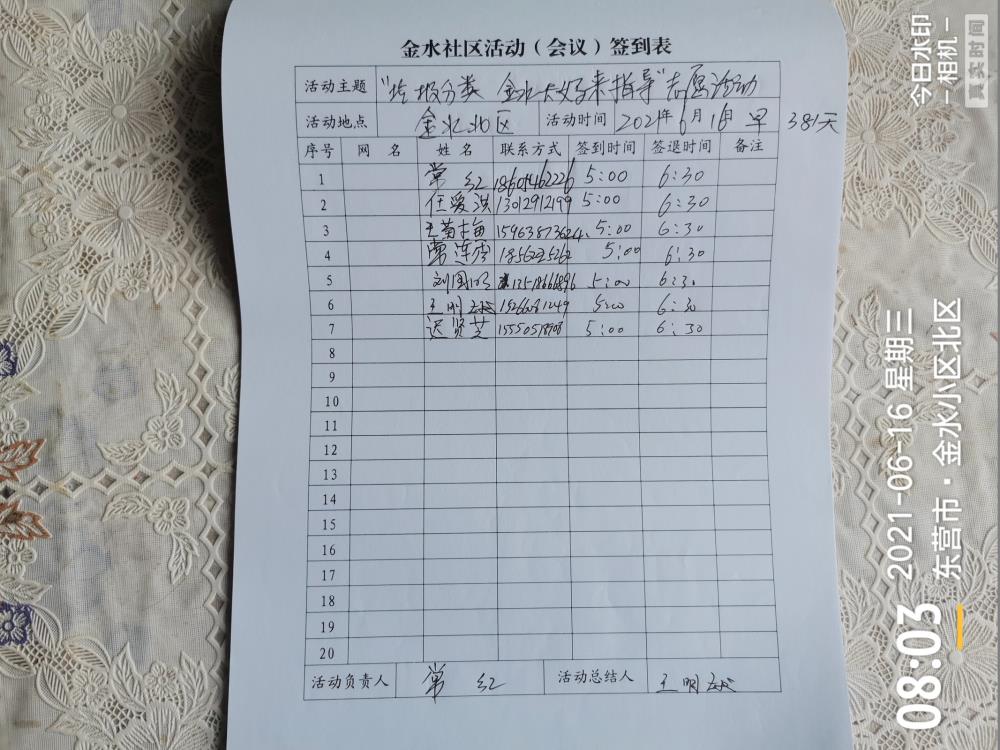 金水社区活动（会议）签到表
活动主题 "垃圾分类 金水大妈来指导"志愿活动
活动地点 金水北区 活动时间 2021年6月16日 早 381天
序号 网名 姓名 联系方式 签到时间 签退时间 备注
1 常红 5:00 6:30
2 任爱洪 13012912199 5:00 6:30
3 王苗梅 15963873624 5:00 6:30
4 常连雪 5:00 6:30
5 刘国 5:00 6:30
6 王明 5:00 6:30
7 迟贤芝 5:00 6:30
8
9
10
11
12
13
14
15
16
17
18
19
20
活动负责人 常红 活动总结人 王明
今日水印
-相机-
真实时间
08:03
2021-06-16 星期三
东营市·金水小区北区